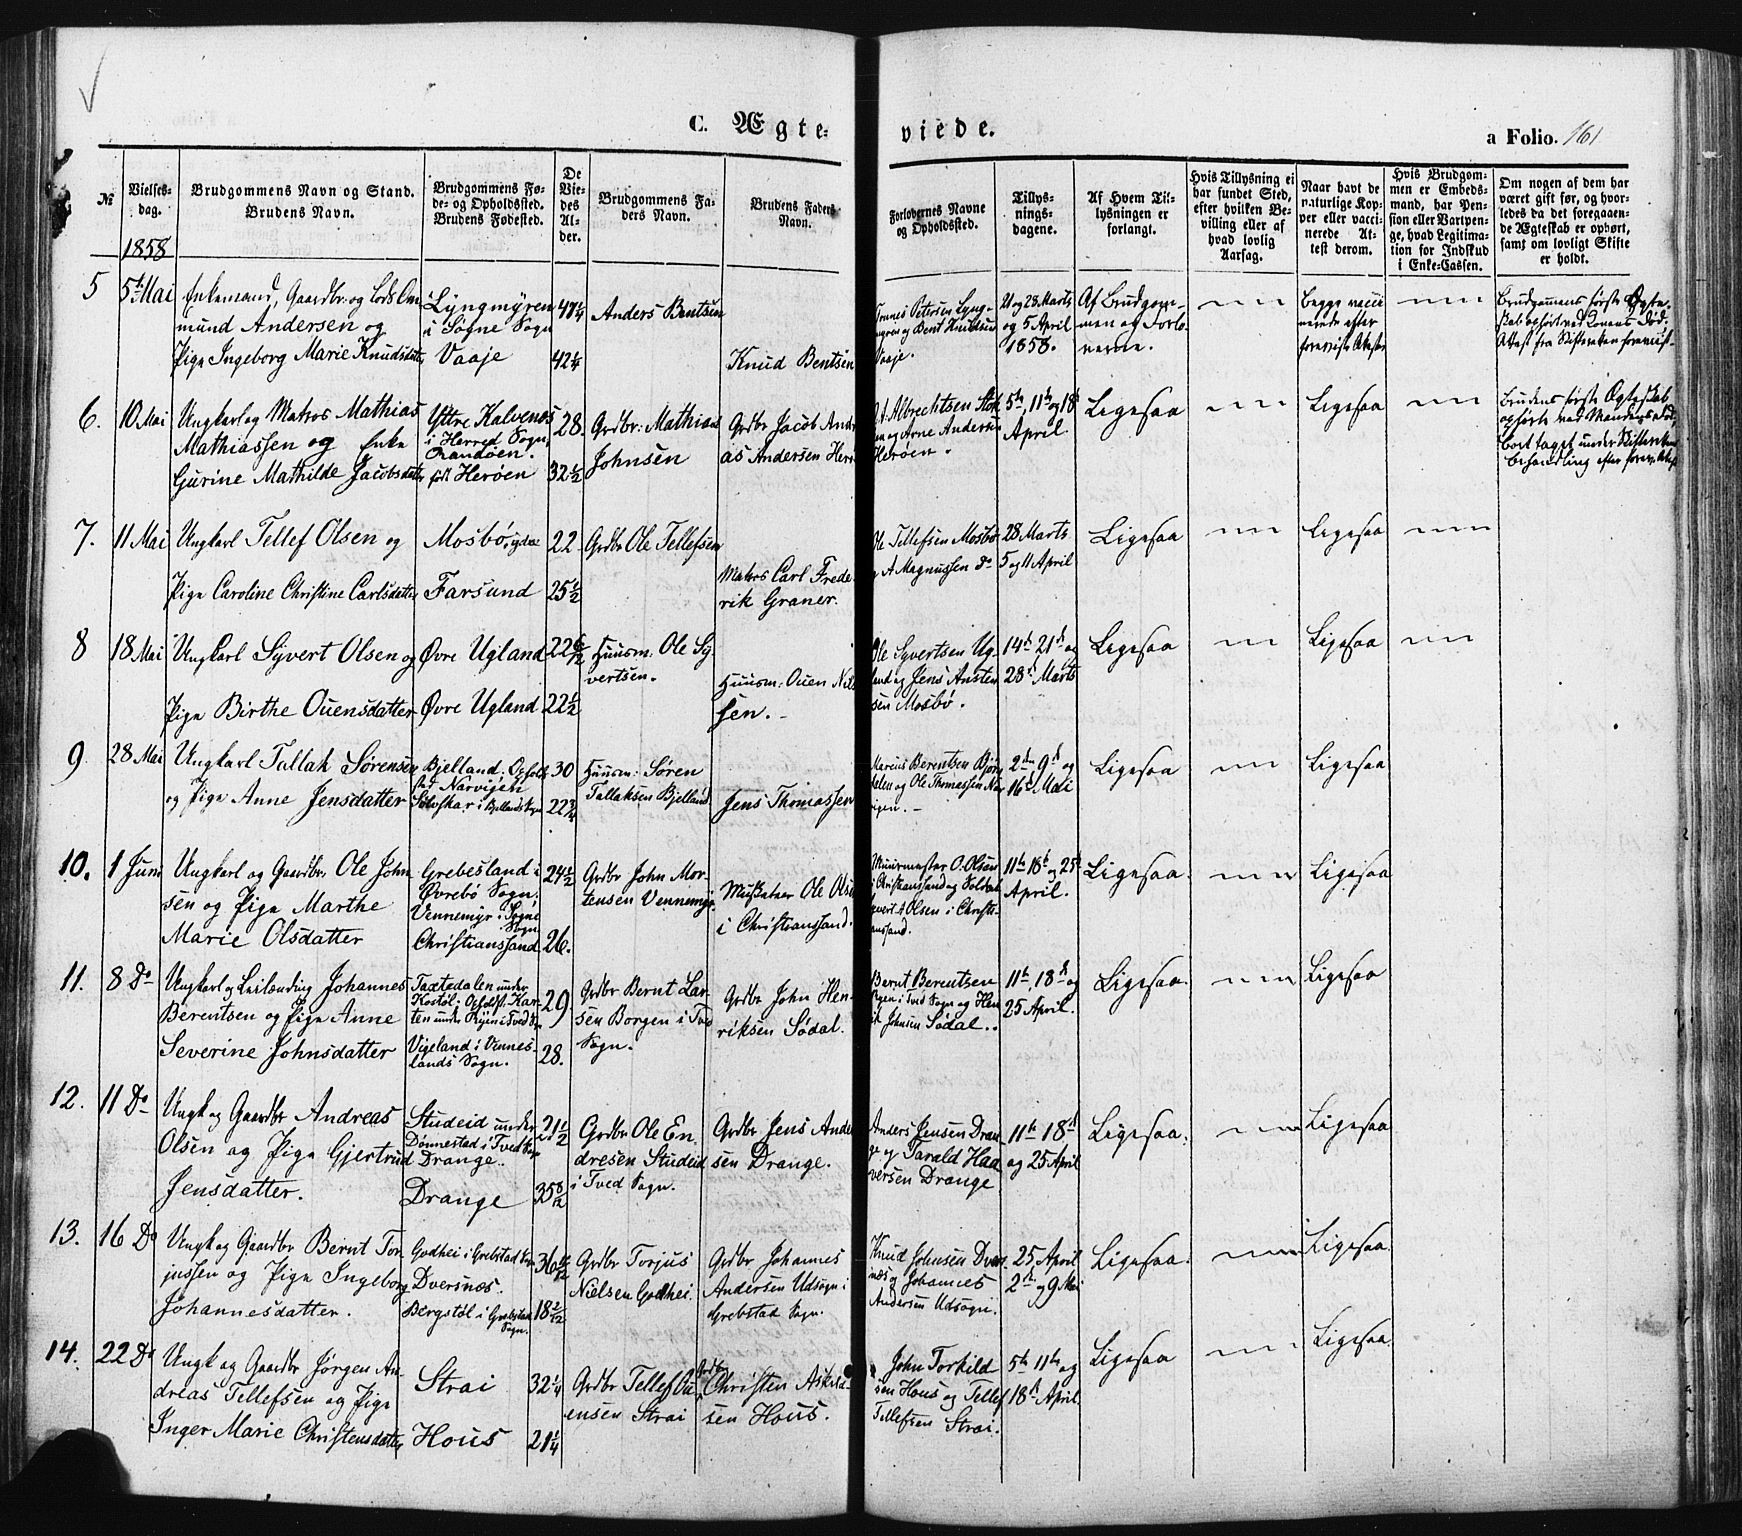 C. Ægte-
viede.
a Folio. 161
№
Vielses-
dag.
Brudgommens Navn og Stand.
Brudens Navn.
Brudgommens Fø-
de- og Opholdssted.
Brudens Fødested.
De
Vie-
des
Al-
der.
Brudgommens Fa-
ders Navn.
Brudens Faders
Navn.
Forlovernes Navne
og Opholdssted.
Tillys-
nings-
dagene.
Af Hvem Til-
lysningen er
forlangt.
Hvis Tillysning ei
har fundet Sted,
efter hvilken Be-
villing eller af
hvad lovlig
Aarsag.
Naar havt de
naturlige Kop-
per eller vacci-
nerede At-
test derom.
Hvis Brudgom-
men er Embeds-
mand, har Pen-
sion eller Vartpen-
ge, hvad Legitima-
tion for Indskud
i Enke-Cassen.
Om nogen af dem har
været gift før, og hvor-
ledes da det foregaaen-
de Ægteskab er ophørt,
samt om lovligt Skifte
er holdt.
1858
5
5t Mai
Enkemand, Gaardbr. og Lods Om
mund Andersen og
Pige Ingeborg Marie Knudsdatter
Lyngmyren
i Søgne Sogn
Vaaje
47 1/4
42 1/4
Anders Bentsen
Knud Bentsen
Petersen Lyng-
og Berit Knudsen
Vaaje.
21 og 28 Marts
og 5 April
1858.
Af Brudgom-
men og Forlo-
verne.
Begge vacci
nerede efter
foreviste Attester
Brudgommens første Ægte-
skab ophørt ved Konens Død.
Attest fra Skifteretten forevist.
6.
10 Mai
Ungkarl og Matros Mathias
Mathiassen og Enke
Gurine Mathilde Jacobsdatter
Ytre Kalvenes
i Herred Sogn
Randøen.
født Herøen
28.
32 1/2
Grdbr: Mathias
Johnsen
Grdbr Jacob Andr
as Andersen Her
Albrechtsen Stok
en og Arne Anders
Herøen.
5te, 11te og 18
April
Ligesaa
Ligesaa
Brudens første Ægteskab
ophørte ved Mandens død
Bort taget under Skifterettens
behandling efter forev. Attest
7.
11 Mai
Ungkarl Tellef Olsen og
Pige Caroline Christine Carlsdatter
Mosbø, ydre
Farsund
22
25 1/2
Grdbr Ole Tellefsen
Matros Carl Frede
rik Graner.
Ole Tellefsen Mosbø
og A Magnussen do
28 Marts
5 og 11 April
Ligesaa
Ligesaa
8
18 Mai
Ungkarl Syvert Olsen og
Pige Birthe Ouensdatter
Øvre Ugland
Øvre Ugland
22 6/12
22 1/2
Huusm. Ole Sy
vertsen.
Huusm: Ouen Niel
sen.
Ole Syvertsen Ug-
land og Jens Ansten
sen Mosbø.
14de 21de og
28de Marts
Ligesaa
Ligesaa
9
28 Mai
Ungkarl Tallak Sørensen
og Pige Anne Jensdatter
Bjelland. Opholds
sted Narvigen
i Bjellands Sogn
30
22 3/4
Huusm: Søren
Tallaksen Bjelland
Jens Thomassen
Marcus Berentsen Bjørn
dalen og Ole Thomassen Nar
vigen.
2den 9de og
16de Mai
Ligesaa
Ligesaa
10.
1 Juni
Ungkarl og Gaardbr Ole John
sen og Pige Marthe
Marie Olsdatter
Grebesland i
Øvrebø Sogn,
Vennemyr i Søgne
Sogn
Christianssand
24 1/2
26.
Grdbr John Mor-
tensen Vennemyr
Musketeer Ole Olsen
i Christianssand.
Muurmester O. Olsen
i Christianssand og Soldat
Syvert A Olsen i Christi-
anssand.
11te 18de og 25de
April.
Ligesaa.
Ligesaa
11.
8 Do
Ungkarl og Leilænding Johannes
Berentsen og Pige Anne
Severine Johnsdatter
Taxtedalen under
Kostøl, Opholdst. Kar-
ten under Ryen i Tved Sogn
Vigeland i Vennes-
lands Sogn.
29
28.
Grdbr Bernt Lar-
sen Borgen i Tved
Sogn.
Grdbr John Hen-
riksen Sødal.
Bernt Berentsen
Borgen i Tved Sogn og Hen
rik Johnsen Sødal.
11te, 18de og
25 April.
Ligesaa.
Ligesaa
12.
11 Do
Ungk og Gaardbr Andreas
Olsen og Pige Gjertrud
Jensdatter.
Studeid under
Dønnestad i Tved Sogn
Drange.
Drange
21 1/2
35 8/12
Grdbr Ole En-
dresen Studeid
i Tved Sogn.
Grdbr Jens Ander
sen Drange.
Anders Jensen Dran-
ge og Tarald Haa
versen Drange
11te 18de
og 25 April
Ligesaa.
Ligesaa
13.
16 Do
Ungk og Gaardbr Bernt Tor-
jussen og Pige Ingeborg
Johannesdatter.
Godhei i Grebstad Sogn
Dversnæs.
Bergstøl i Grebstad
Sogn.
36
18 2/12
Grdbr Torjus
Nielsen Godhei.
Grdbr Johannes
Andersen Udsøgn i
Grebstad Sogn.
Knud Johnsen Dvers
næs og Johannes
Andersen Udsøgn.
25 April
2den og 9 Mai
Ligesaa.
Ligesaa.
14.
22 Do
Ungk og Gaardbr Jørgen An-
dreas Tellefsen og Pige
Inger Marie Christensdatter
Strai
Hous
32 1/4
21 1/4
Grdbr Tellef
ensen Strai
Grdbr
Christen Askild-
sen Hous.
John Torkild
sen Hous og Tellef
Tellefsen Strai.
5te 11te og
18de April.
Ligesaa
Ligesaa.